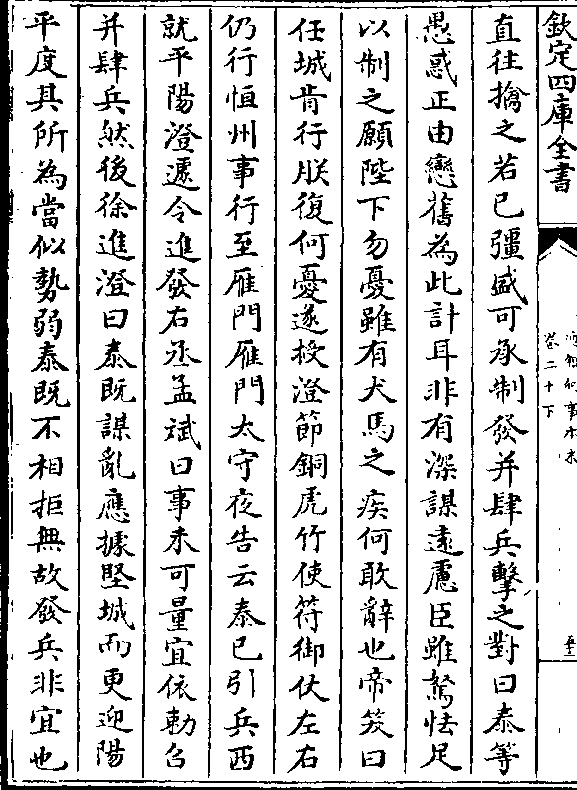 欽定四庫全書
卷二十下
直往擒之若已彊盛可承制發并肆兵擊之對曰泰等
愚惑正由戀舊為此計耳非有深謀遠慮臣雖駑怯足
以制之願陛下勿憂雖有犬馬之疾何敢辭也帝笑曰
任城肯行朕復何憂遂授澄節銅虎竹使符御仗左右
仍行恒州事行至雁門雁門太守夜告云泰已引兵西
就平陽澄遽令進發右丞孟斌曰事未可量宜依勅召
并肆兵然後徐進澄曰泰既謀亂應據堅城而更迎陽
平度其所為當似勢弱泰既不相拒無故發兵非宜也